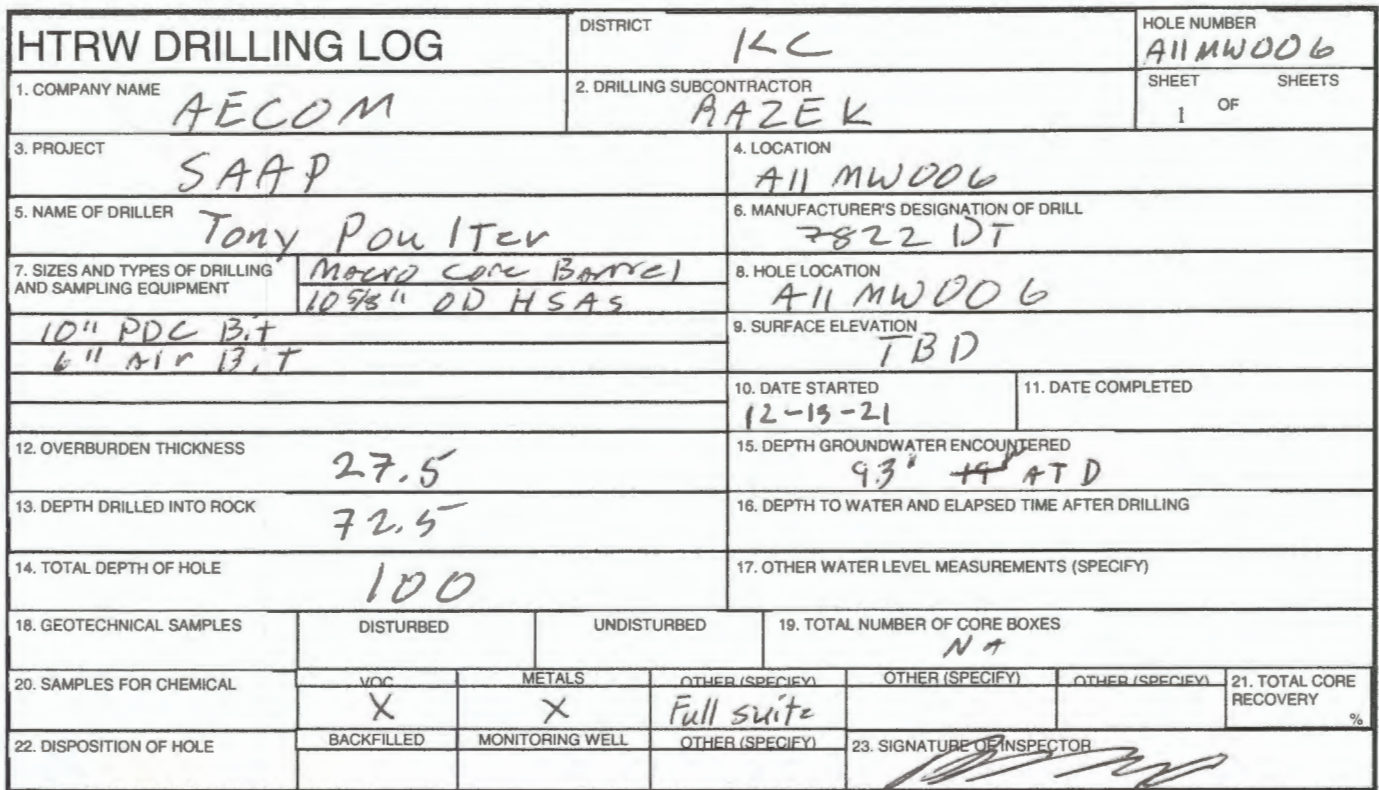 HTRW DRILLING LOG
DISTRICT
KC
HOLE NUMBER
A11MW006
1. COMPANY NAME
AECOM
2. DRILLING SUBCONTRACTOR
RAZEK
SHEET SHEETS
1 OF
3. PROJECT
SAAP
4. LOCATION
A11 MW006
5. NAME OF DRILLER
Tony Poulter
6. MANUFACTURER'S DESIGNATION OF DRILL
7822 DT
7. SIZES AND TYPES OF DRILLING
AND SAMPLING EQUIPMENT
Macro Core Barrel
10 5/8" OD HSAs
10" PDC Bit
6" Air Bit
8. HOLE LOCATION
A11 MW006
9. SURFACE ELEVATION
TBD
10. DATE STARTED
12-13-21
11. DATE COMPLETED
12. OVERBURDEN THICKNESS
27.5
15. DEPTH GROUNDWATER ENCOUNTERED
93' ATD
13. DEPTH DRILLED INTO ROCK
72.5
16. DEPTH TO WATER AND ELAPSED TIME AFTER DRILLING
14. TOTAL DEPTH OF HOLE
100
17. OTHER WATER LEVEL MEASUREMENTS (SPECIFY)
18. GEOTECHNICAL SAMPLES
DISTURBED
UNDISTURBED
19. TOTAL NUMBER OF CORE BOXES
NA
20. SAMPLES FOR CHEMICAL
VOC
X
METALS
X
OTHER (SPECIFY)
Full suite
OTHER (SPECIFY)
OTHER (SPECIFY)
21. TOTAL CORE
RECOVERY
%
22. DISPOSITION OF HOLE
BACKFILLED
MONITORING WELL
OTHER (SPECIFY)
23. SIGNATURE OF INSPECTOR